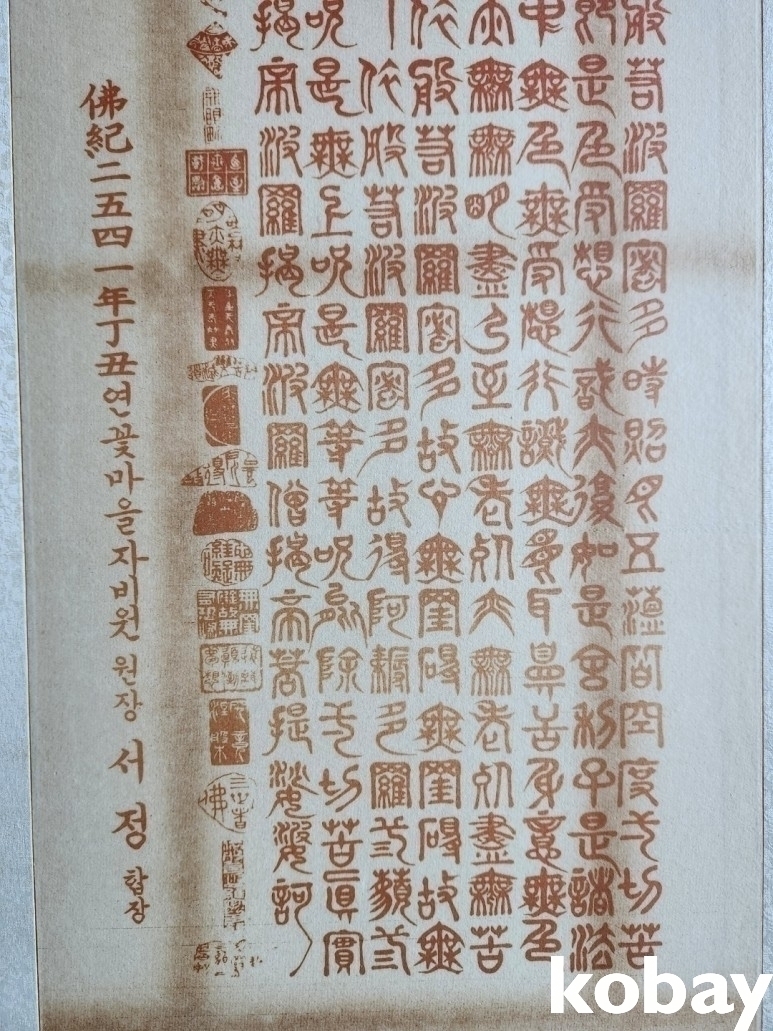 般若波羅蜜多時照見五蘊皆空度一切苦
卽是色受想行識亦復如是舍利子是諸法
中無色無受想行識無眼耳鼻舌身意無色
亦無無明盡乃至無老死亦無老死盡無苦
依般若波羅蜜多故心無罣碍無罣碍故無
依般若波羅蜜多故得阿耨多羅三藐三
呪是無上呪是無等等呪能除一切苦眞實
揭帝波羅揭帝波羅僧揭帝菩提娑婆訶
佛紀二五四一年丁丑 연꽃마을자비원 원장 서정 합장
kobay